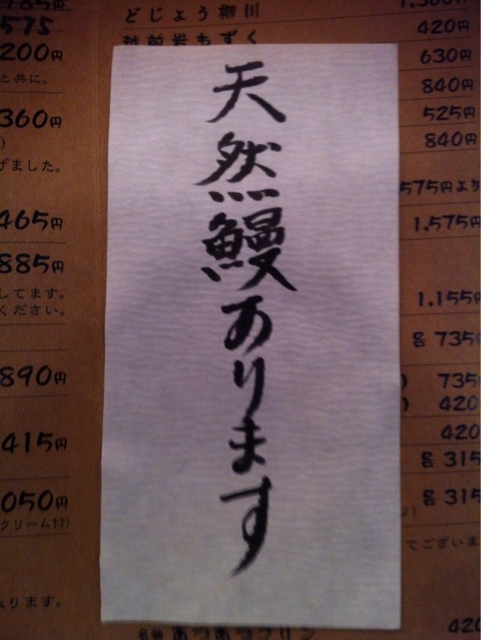 天然鰻あります
どじょう柳川
越前岩もずく
575
200円
と共に。
360円
げました。
465円
885円
してます。
ください。
890円
415円
050円
クリーム付)
ります。
420円
630円
840円
525円
840円
575円より
1,575円
1,155円
各 735円
735円
420
420
各 315
各 315
てございま
420